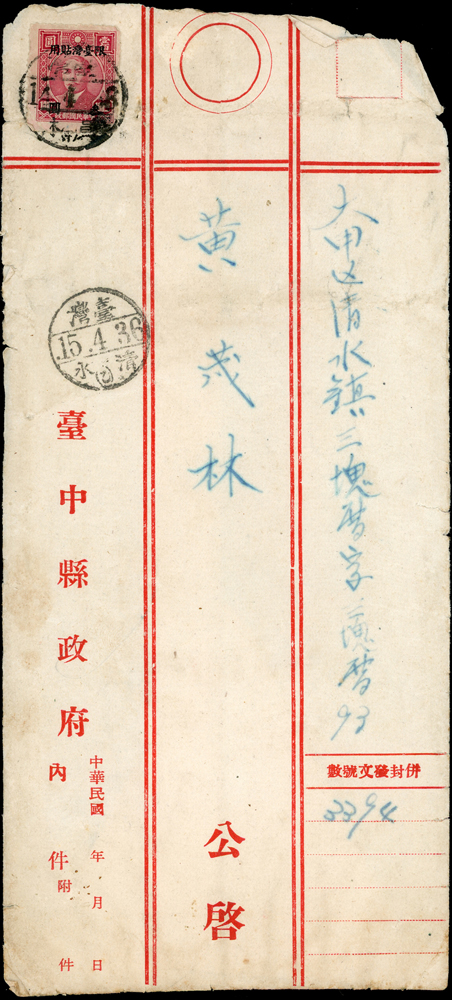 大甲区清水鎮三塊厝字
厝93
併封發文號數
3394
黄茂林
公啓
限臺灣貼用
圓
臺灣
15.4.36
清水
臺中縣政府
中華民國 年 月 日
內件
附件